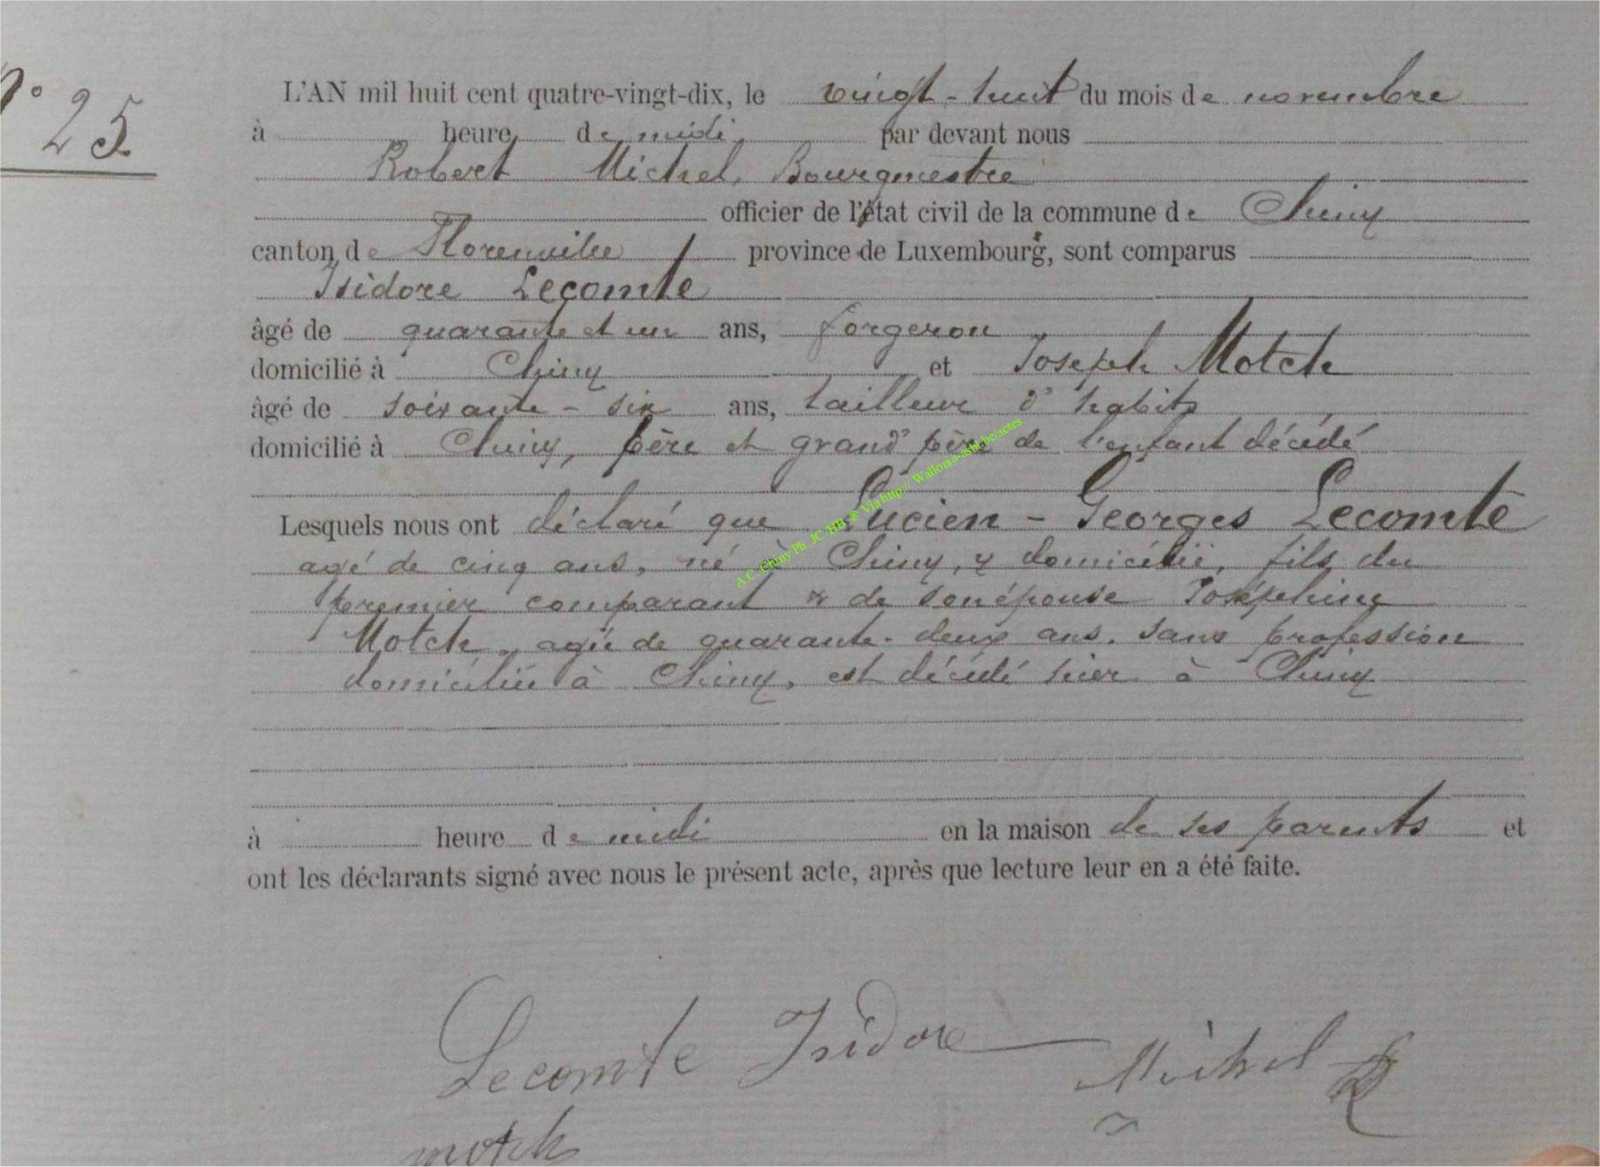 N° 25
L'AN mil huit cent quatre-vingt-dix, le vingt-huit du mois de novembre
à heure de midi par devant nous
Robert Michel, Bourgmestre
officier de l'état civil de la commune de Chiny
canton de Florenville province de Luxembourg, sont comparus
Isidore Lecomte
âgé de quarante et un ans, forgeron
domicilié à Chiny et Joseph Motch
âgé de soixante-six ans, tailleur d'habits
domicilié à Chiny, père et grand'père de l'enfant décédé
Lesquels nous ont déclaré que Lucien-Georges Lecomte
agé de cinq ans, né à Chiny, y domicilié, fils du
premier comparant & de son épouse Joséphine
Motch, agée de quarante-deux ans, sans profession
domiciliée à Chiny, est décédé hier à Chiny
à heure de midi en la maison de ses parents et
ont les déclarants signé avec nous le présent acte, après que lecture leur en a été faite.
Lecomte Isidore
Michel R
motch